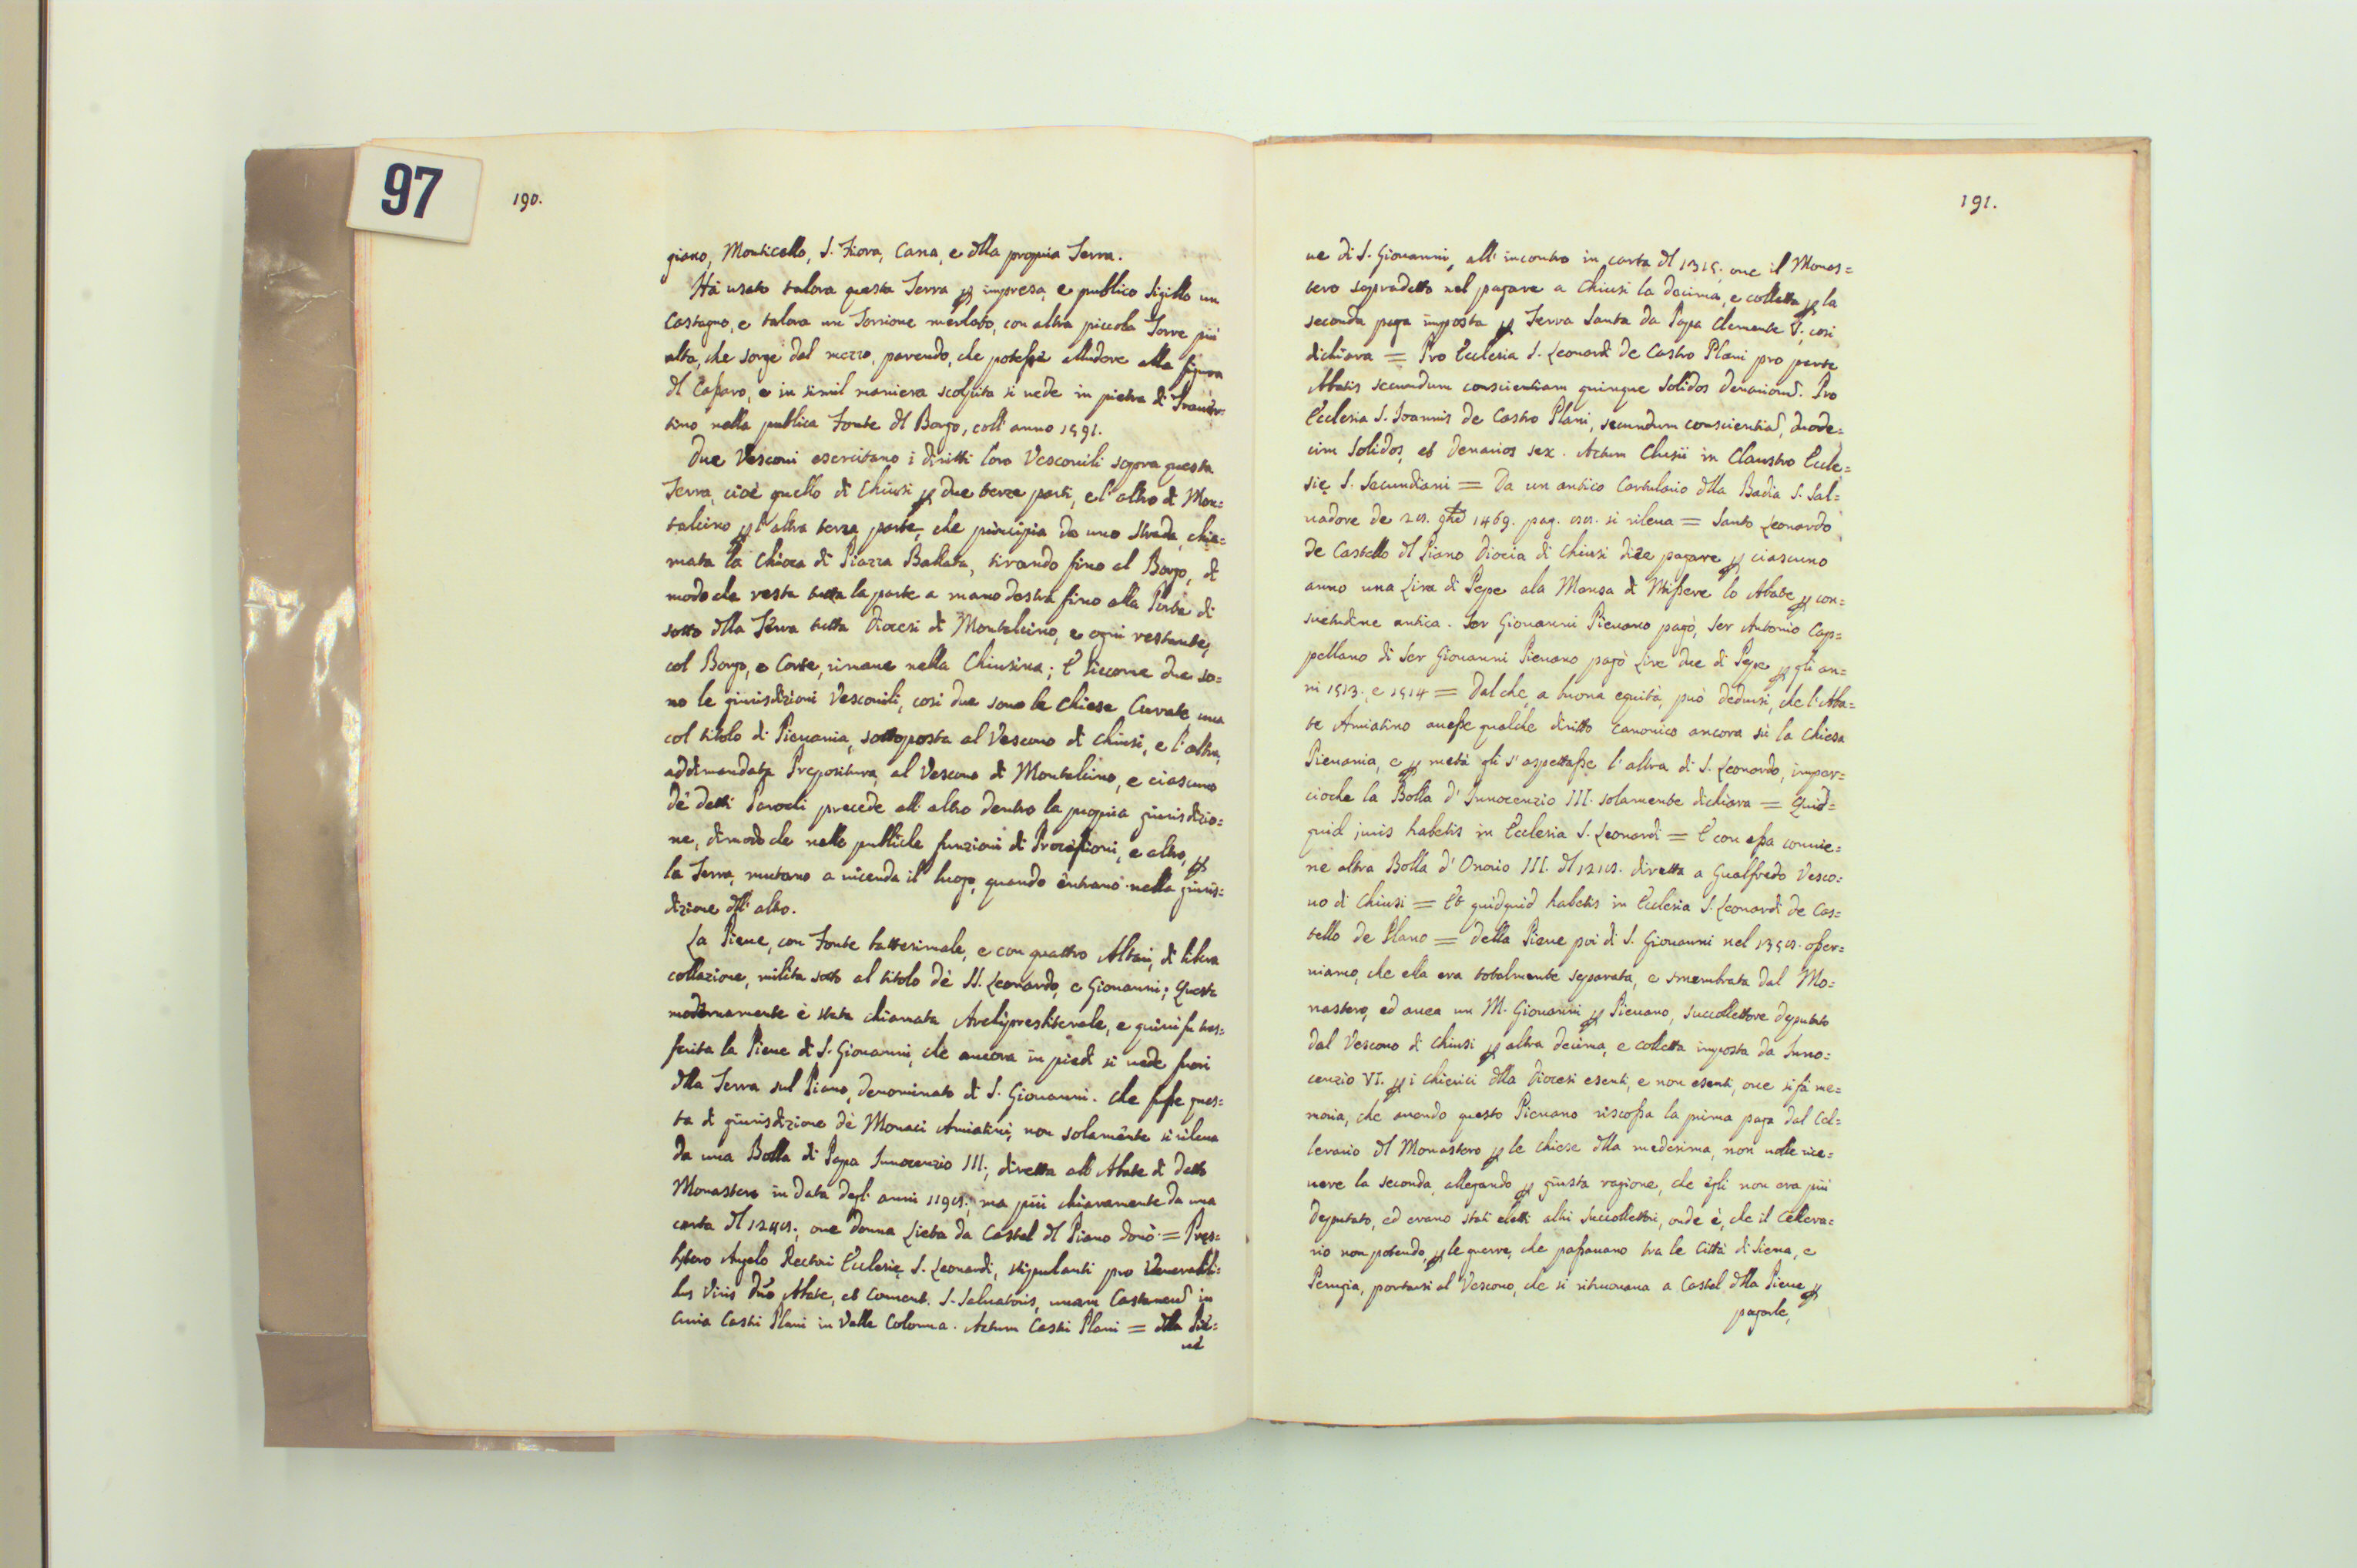 97
190.
giano, Monticello, S. Fiora, Cana, e dlla propria Terra.
Hà usato talora questa Terra p impresa, e publico sigillo un
Castagno, e talora un Torrione merlato, con altra piccola Torre più
alta, che sorge dal mezzo, parendo, che potesse alludere alla figura
dl Cassaro, e in simil maniera scolpita si uede in pietra di Trauer=
tino nella publica Fonte dl Borgo, coll' anno 1591.
Due Vescoui esercitano i diritti loro Vescouili sopra questa
Terra, cioè quello di Chiusi p due terze parti, e l'altro di Mon=
talcino p l'altra terza parte, che principia da una Strada, chia=
mata la Chioca di Piazza Ballata, tirando fino al Borgo, di
modo che resta tutta la parte a mano destra fino alla Porta di
sotto dlla Terra tutta Diocesi di Montalcino, e ogni restante,
col Borgo, e Corte, rimane nella Chiusina; E siccome due so=
no le giurisdizioni Vescouili, così due sono le Chiese Curate, una
col titolo di Pieuania, sottoposta al Vescouo di Chiusi, e l'altra,
addimandata Prepositura, al Vescouo di Montalcino, e ciascuno
dè detti Parochi precede all' altro dentro la propria giurisdizio=
ne, dimodoche nelle publiche funzioni di Processioni, e altro, p
la Terra, mutano a uicenda il luogo, quando entrano nella giuris=
dizione dll' altro.
La Pieue, con Fonte battesimale, e con quattro Altari, di libera
collazione, milita sotto al titolo dè SS. Leonardo, e Giouanni; Questa
modernamente è stata chiamata Archipresbiterale, e quiui fu tras=
ferita la Pieue di S. Giouanni, che ancora in piedi si uede fuori
dlla Terra sul Piano, denominato di S. Giouanni. Che fosse ques=
ta di giurisdizione dè Monaci Amiatini, non solamente si rileua
da una Bolla di Papa Innocenzio III., diretta all' Abate di detto
Monastero in data degl' anni 119; ma più chiaramente da una
carta dl 124; oue Donna Lieta da Castel dl Piano donò = Pres=
bytero Angelo Rectori Ecclesię S. Leonardi, stipulanti pro Venerabili=
bus Viris Dño Abate, et Conuent. S. Saluatoris, unam Castaneam in
Curia Castri Plani in Valle Colonna. Actum Castri Plani = dlla Pie=
ue
191.
ue di S. Giouanni, all' incontro in carta dl 1315. oue il Monas=
tero sopradetto nel pagare a Chiusi la decima, e colletta p la
seconda paga imposta p Terra Santa da Papa Clemente V., così
dichiara = Pro Ecclesia S. Leonardi de Castro Plani pro parte
Abatis secundum conscientiam quinque solidos denariorum. Pro
Ecclesia S. Joannis de Castro Plani, secundum conscientiam, duode=
cim solidos, et denarios sex. Actum Clusii in Claustro Eccle=
się S. Secundiani = Da un antico Cartulario dlla Badia S. Sal=
uadore de 9bre 1469. pag. si rileua = Santo Leonardo
de Castello dl Piano Diocia di Chiusi diee pagare p ciascuno
anno una Lira di Pepe ala Mensa di Missere lo Abate p con=
suetudine antica. Ser Giouanni Pieuano pagò, Ser Antonio Cap=
pellano di Ser Giouanni Pieuano pagò Lire due di Pepe p gli an=
ni 1513. e 1514 = Dal che, a buona equità, può dedursi, che l'Aba=
te Amiatino auesse qualche diritto canonico ancora sù la Chiesa
Pieuania, e p metà gli s'aspettasse l'altra di S. Leonardo, imper=
cioche la Bolla d'Innocenzio III. solamente dichiara = Quid=
quid juris habetis in Ecclesia S. Leonardi = E con essa conuie=
ne altra Bolla d'Onorio III. dl diretta a Gualfredo Vesco=
uo di Chiusi = Et quidquid habetis in Ecclesia S. Leonardi de Cas=
tello de Plano = della Pieue poi di S. Giouanni nel osser=
uiamo, che ella era totalmente separata, e smembrata dal Mo=
nastero, ed auea un M. Giouanni p Pieuano, succollettore deputato
dal Vescouo di Chiusi p altra decima, e colletta imposta da Inno=
cenzio VI. p i chierici dlla Diocesi esenti, e non esenti, oue si fà me=
moria, che auendo questo Pieuano riscossa la prima paga dal Cel=
lerario dl Monastero p le chiese dlla medesima, non uolle rice=
uere la seconda, allegando p giusta ragione, che egli non era più
deputato, ed erano stati eletti altri succollettori, onde è, che il Cellera=
rio non potendo, p le guerre, che passauano tra le Città di Siena, e
Perugia, portarsi al Vescouo, che si ritrouaua a Castel dlla Pieue p
pagarle,